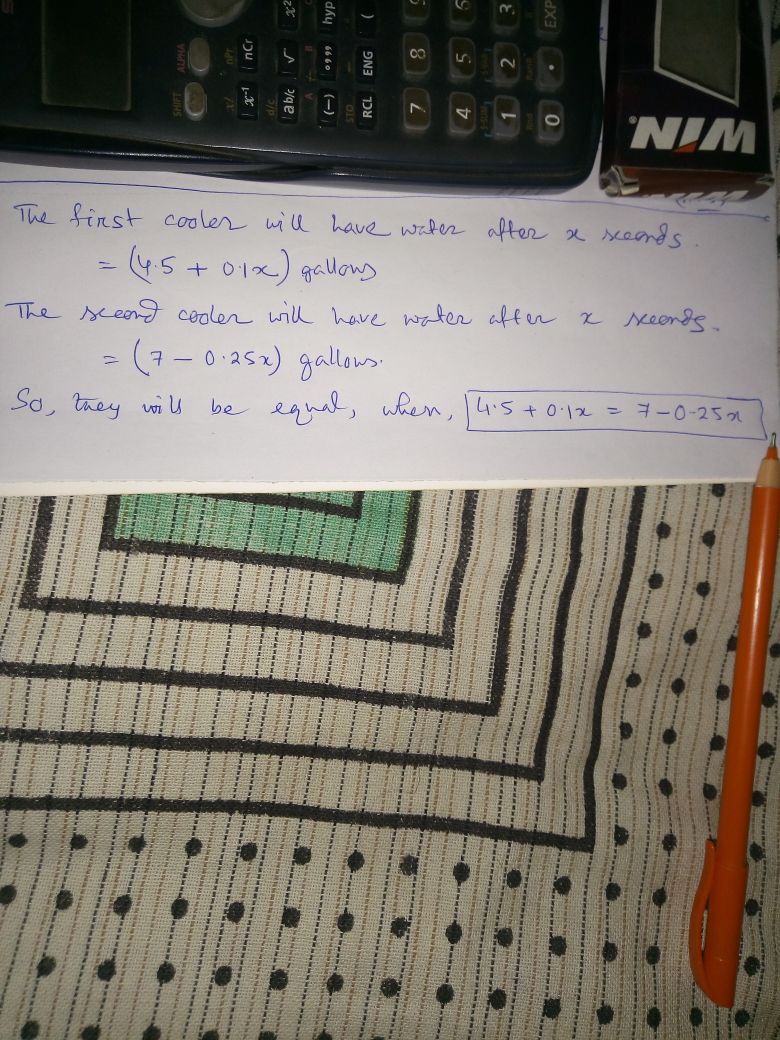 SHIFT
ALPHA
x⁻¹
nCr
ab/c
√
x²
(−)
°,,,
hyp
RCL
ENG
(
7
8
9
4
5
6
1
2
3
0
.
EXP
WIN
The first cooler will have water after x seconds.
= (4.5 + 0.1x) gallons
The second cooler will have water after x seconds.
= (7 − 0.25x) gallons.
So, they will be equal, when, 4.5 + 0.1x = 7 − 0.25x